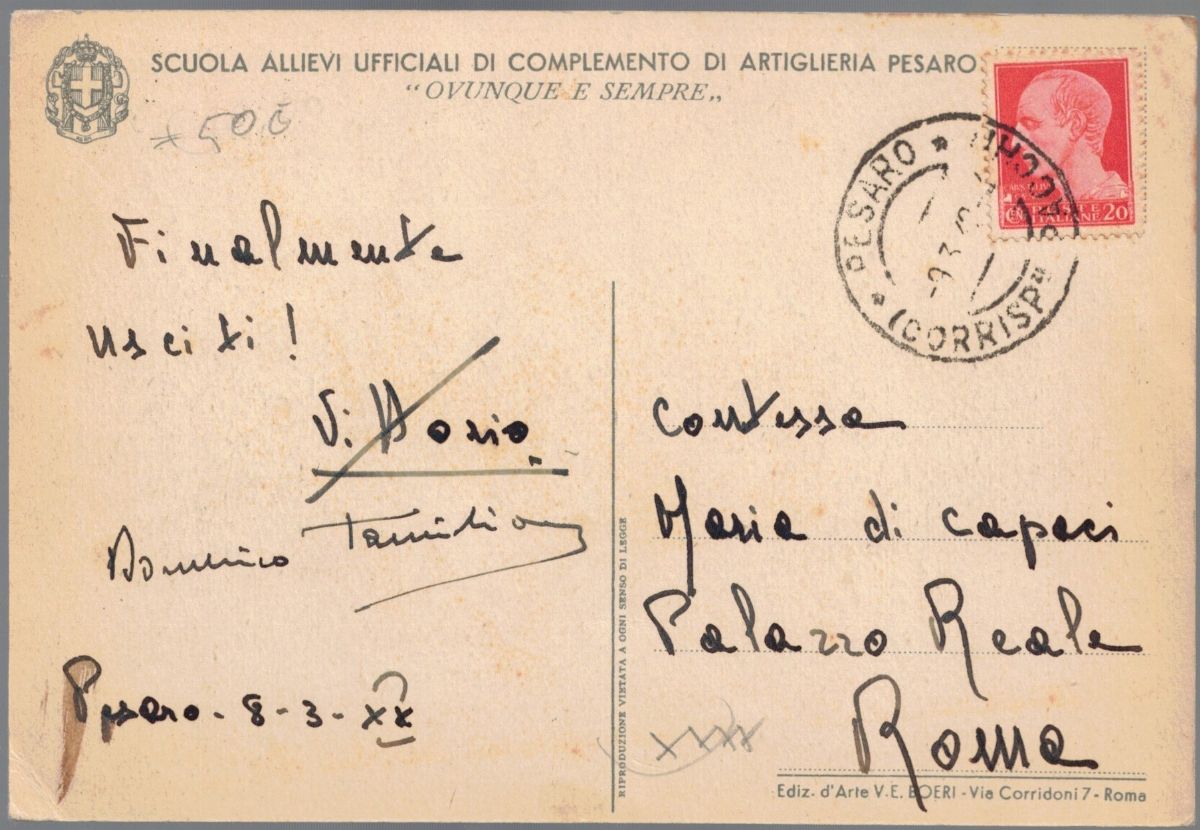 SCUOLA ALLIEVI UFFICIALI DI COMPLEMENTO DI ARTIGLIERIA PESARO
"OVUNQUE E SEMPRE"
50
PESARO * PACCHI * (CORRISP
9 3
CENT 20
ITALIANE
Finalmente
usciti!
Vittorio
Domenico
Pesaro - 8 - 3 - XX
RIPRODUZIONE VIETATA A OGNI SENSO DI LEGGE
Contessa
Maria di Capaci
Palazzo Reale
Roma
XXXX
Ediz. d'Arte V. E. BOERI - Via Corridoni 7 - Roma